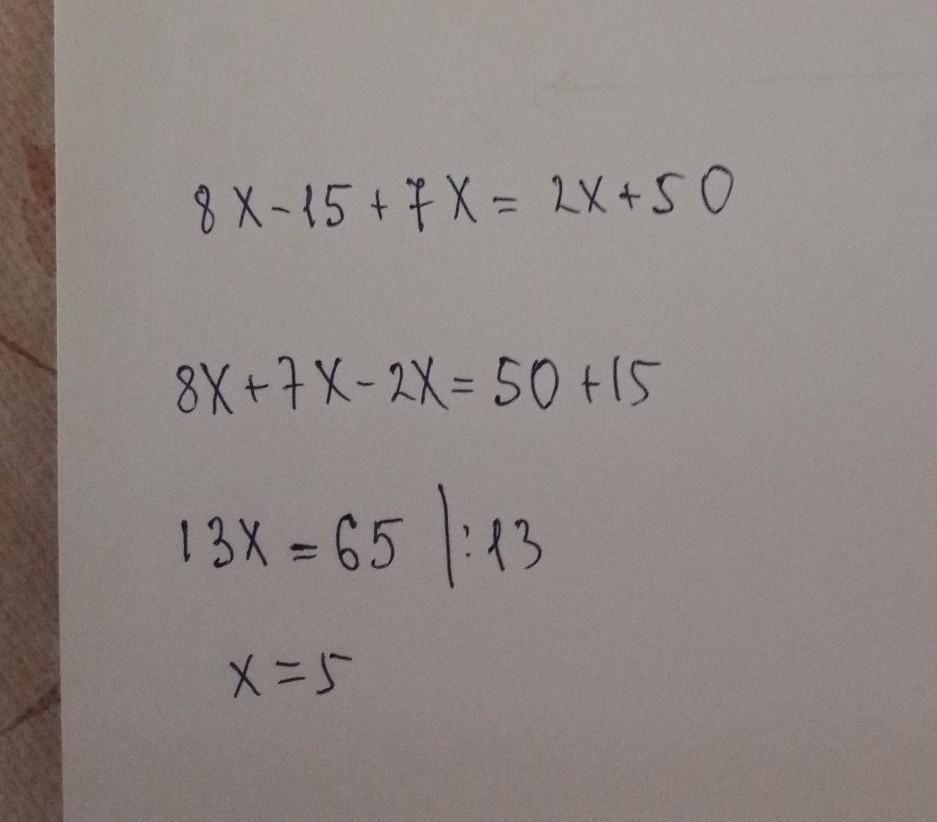 8x-15+7x=2x+50
8x+7x-2x=50+15
13x=65 |:13
x=5